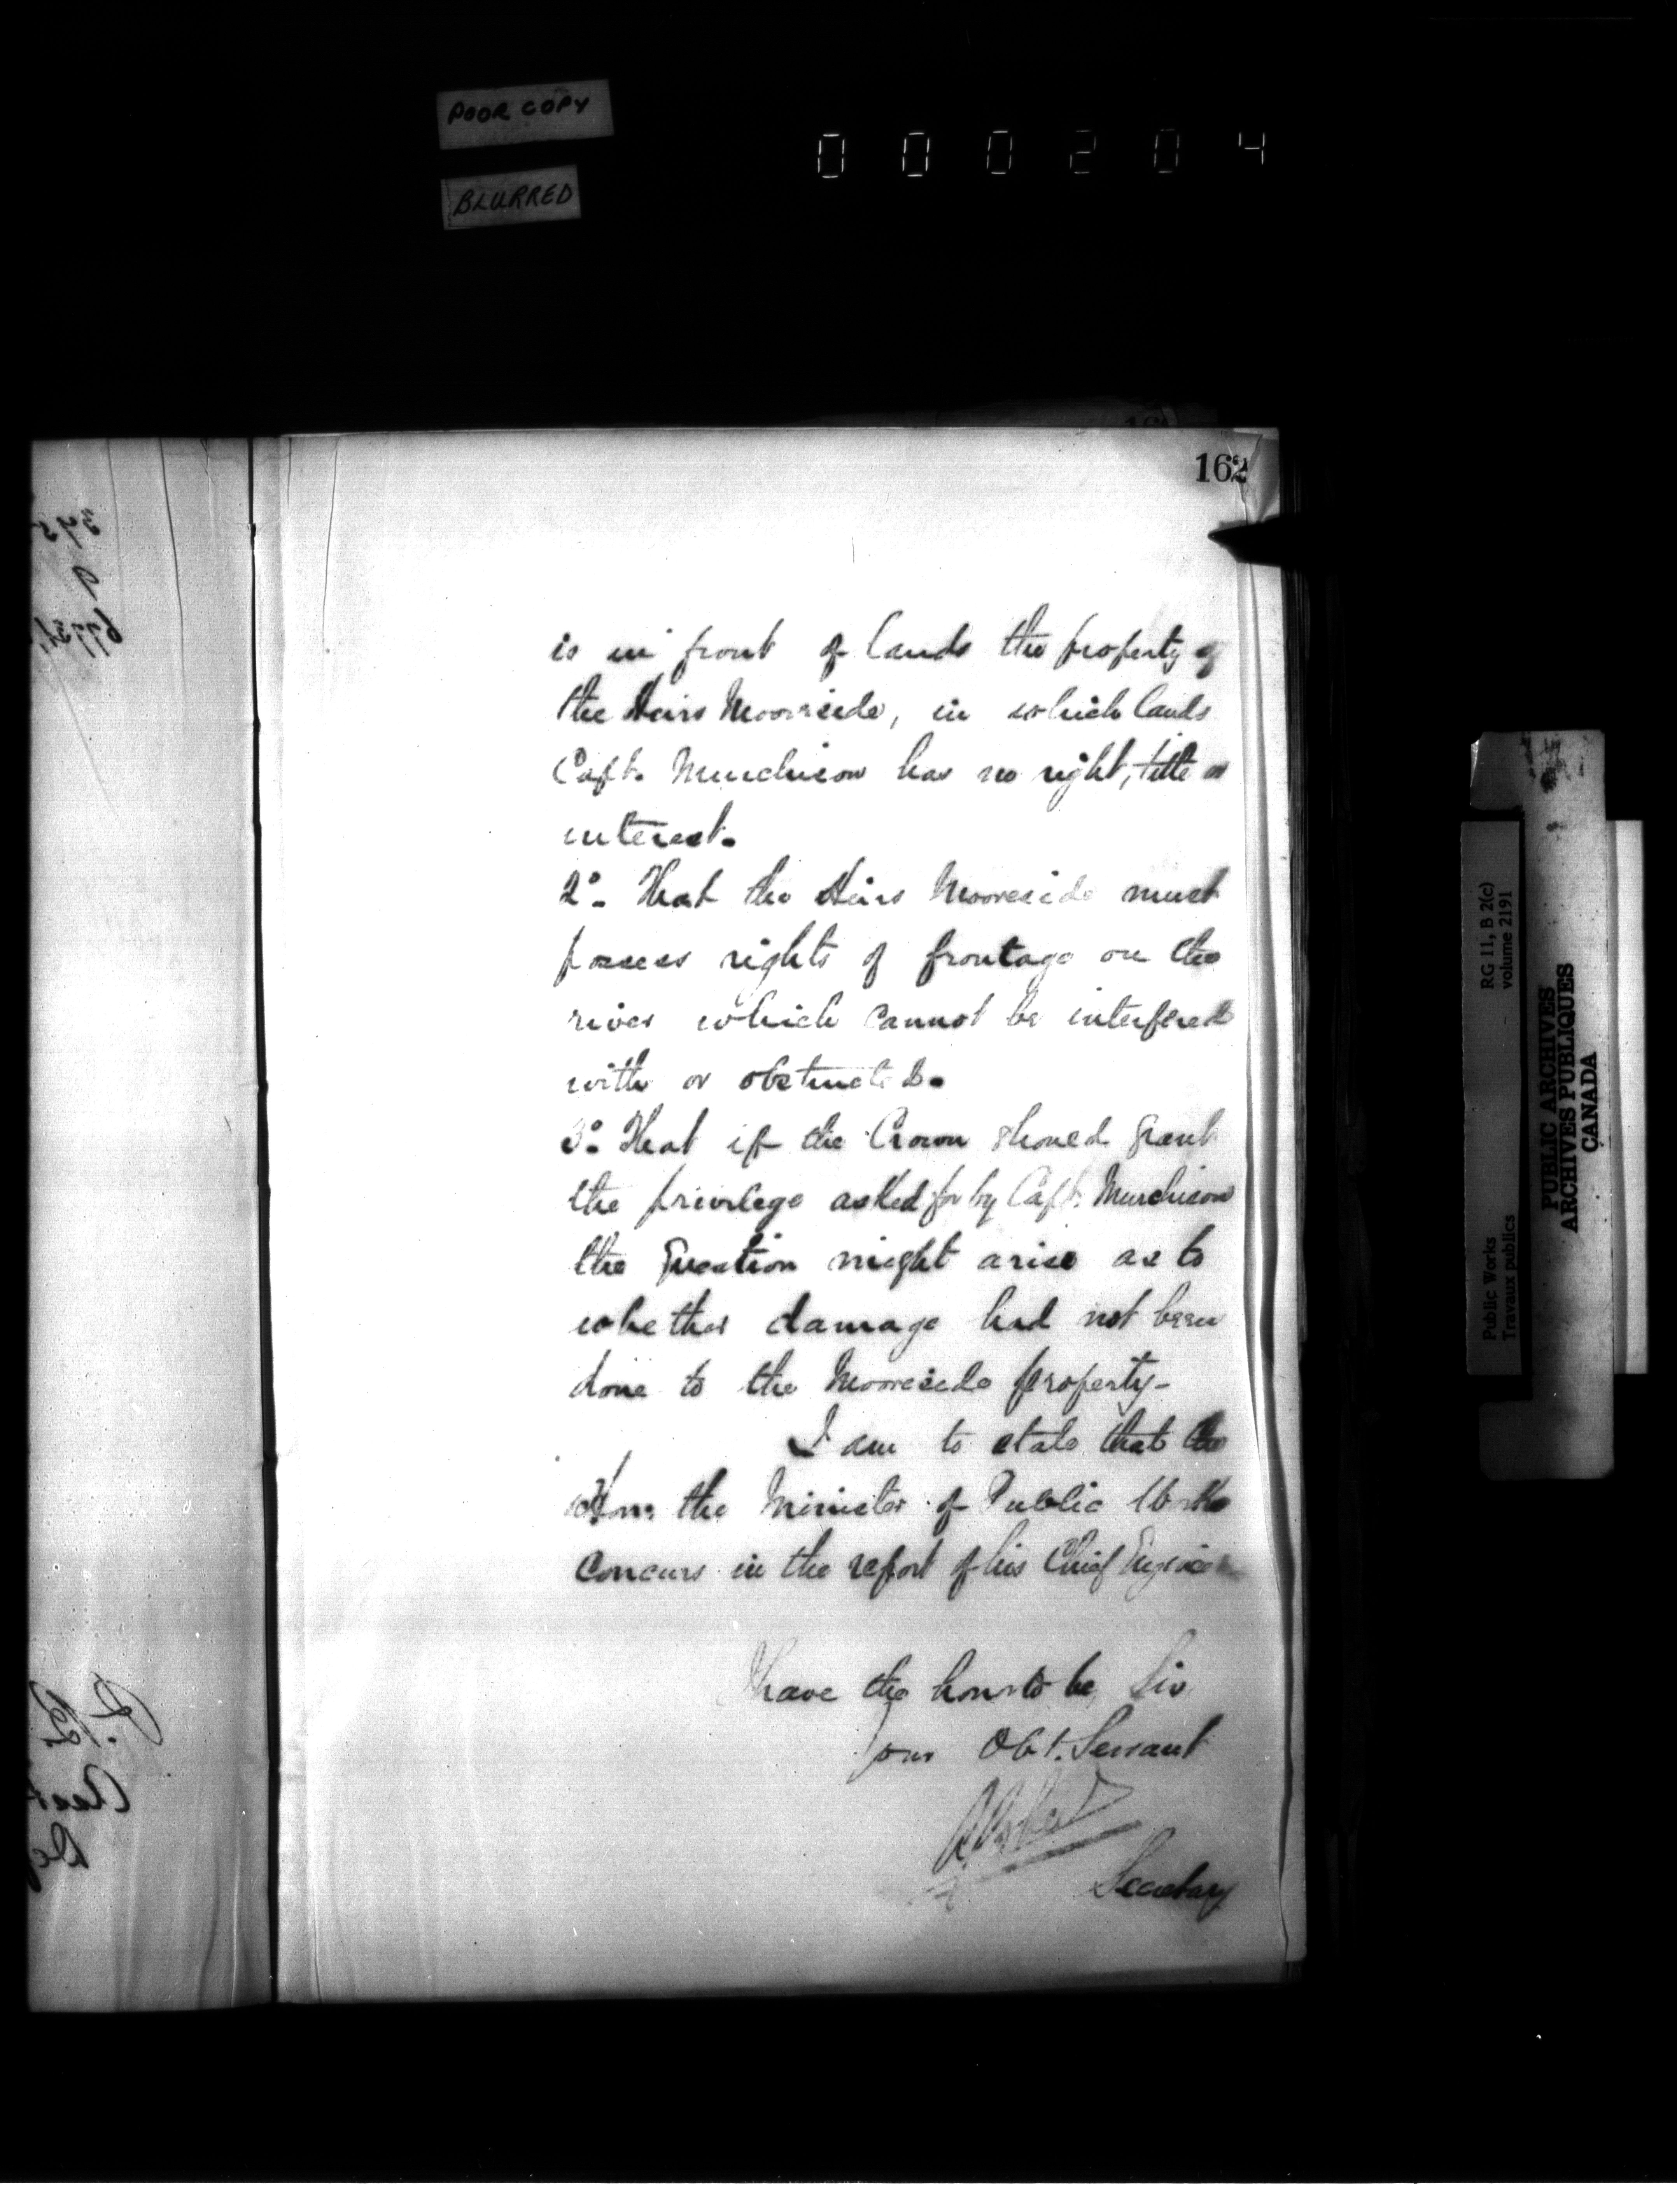 POOR COPY
BLURRED
0 0 0 2 0 4
162
is in front of lands the property of
the Heirs Mooreside, in which lands
Capt. Murchison has no right, title or
interest.
2° - That the Heirs Mooreside must
possess rights of frontage on the
river which cannot be interfered
with or obstructed.
3° That if the Crown should grant
the privilege asked for by Capt. Murchison
the question might arise as to
whether damage had not been
done to the Mooreside property -
I am to state that the
Hon: the Minister of Public Works
concurs in the report of his Chief Engineer
I have the honor to be, Sir
your Obt. Servant
Secretary
Public Works
Travaux publics
RG 11, B 2(c)
volume 2191
PUBLIC ARCHIVES
ARCHIVES PUBLIQUES
CANADA